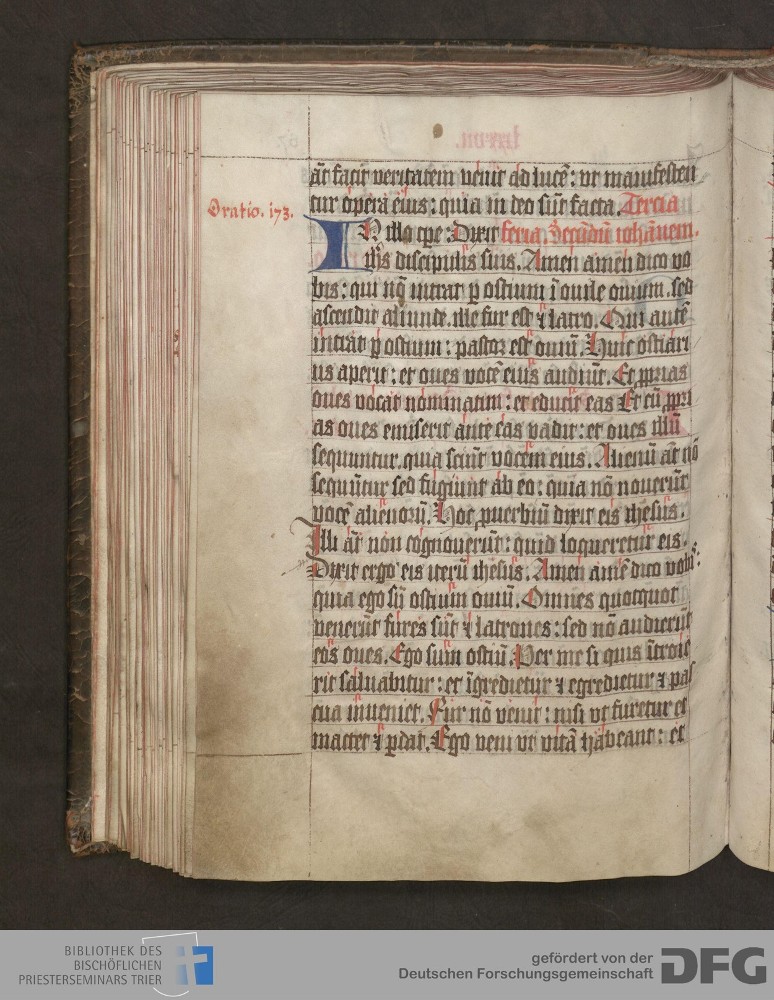 Oratio. 173.
at̄ facit veritatem venit ad lucē: ut manifesten
tur opera eius: quia in deo sūt facta. Tercia
IN illo tp̄e: Dixit feria. Secūdū iohānem.
ih̄s discipulis suis. Amen amen dico vo
bis: qui nō intrat ꝑ ostium ī ouile ouium. sed
ascendit aliunde. ille fur est ⁊ latro. Qui autē
intrat ꝑ ostium: pastor est ouiū. Huic ostiari
us aperit: et oues vocē eius audiūt. Et ꝓprias
oues vocat nominatim: et educit eas Et cū ꝓpri
as oues emiserit ante eas vadit: et oues illū
sequuntur. quia sciūt vocem eius. Alienū at̄ nō
sequūtur sed fugiunt ab eo: quia nō nouerūt
vocē alienorū. Hoc ꝓuerbiū dixit eis ihesus.
Illi at̄ non cognouerūt: quid loqueretur eis.
Dixit ergo eis iterū ihesus. Amen amē dico vobis:
quia ego sū ostium ouiū. Omnes quotquot
venerūt fures sūt ⁊ latrones: sed nō audierūt
eos oues. Ego sum ostiū. Per me si quis ītroie
rit saluabitur: et īgredietur ⁊ egredietur ⁊ pas
cua inueniet. Fur nō venit: nisi ut furetur et
mactet ⁊ ꝑdat. Ego veni ut vitā habeant: et
BIBLIOTHEK DES
BISCHÖFLICHEN
PRIESTERSEMINARS TRIER
gefördert von der
Deutschen Forschungsgemeinschaft
DFG